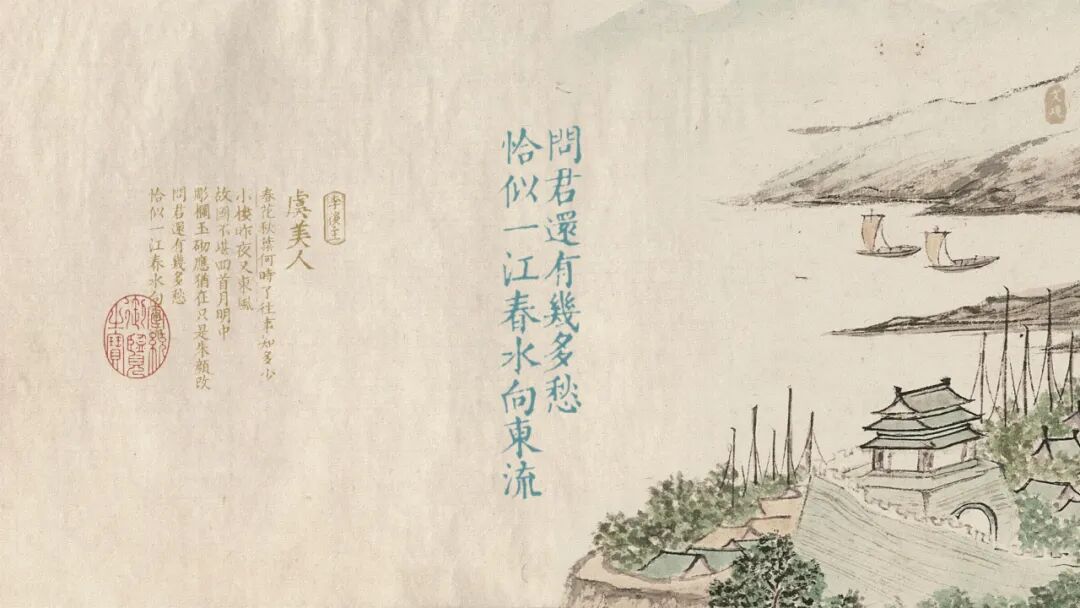 問君還有幾多愁
恰似一江春水向東流
李後主
虞美人
春花秋葉何時了往事知多少
小樓昨夜又東風
故國不堪回首月明中
彫欄玉砌應猶在只是朱顏改
問君還有幾多愁
恰似一江春水向
宣統
御覽
之寶